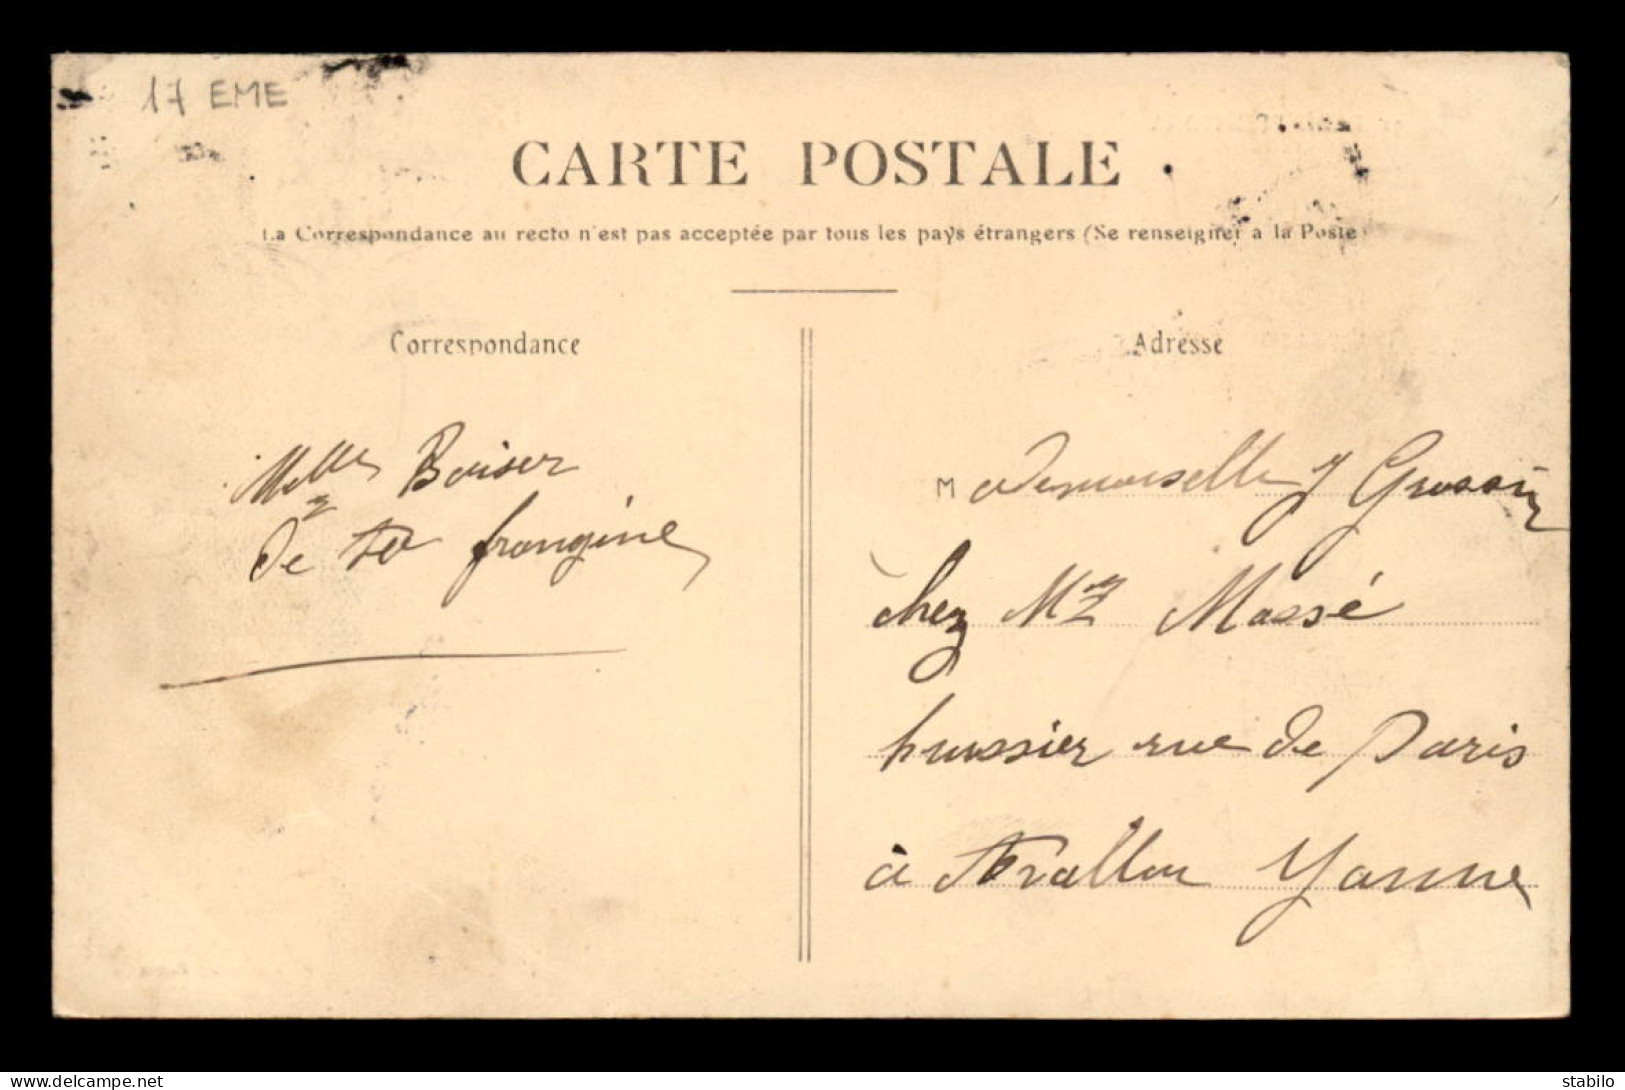 17 EME
CARTE POSTALE
La Correspondance au recto n'est pas acceptée par tous les pays étrangers (Se renseigner à la Poste)
Correspondance
Adresse
Baiser
de ta frangine
Mademoiselle Y Grossin
chez Mr Massé
huissier rue de Paris
à Avallon Yonne
delcampe.net
stabilo